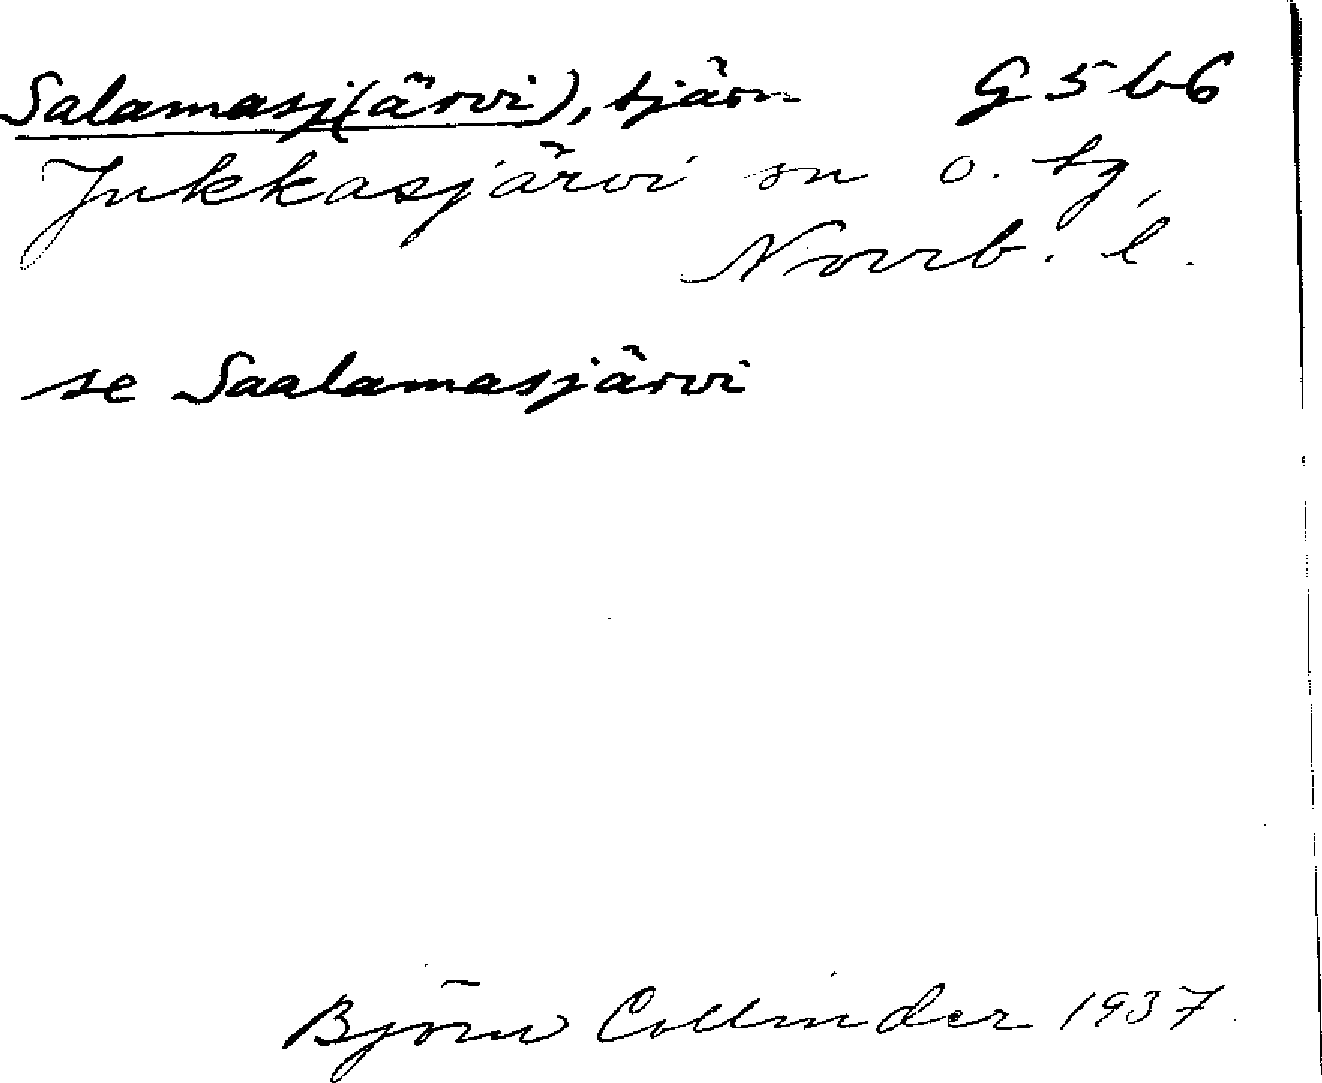 Salamasj(ärvi), tjärn G5b6
Jukkasjärvi sn o. tg,
Norrb. l.
se Saalamasjärvi
Björn Collinder 1937